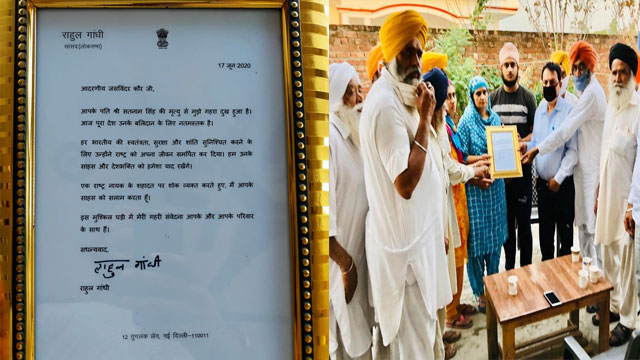 राहुल गांधी
सांसद(लोकसभा)
17 जून 2020
आदरणीय जसविंदर कौर जी,
आपके पति श्री सतनाम सिंह की मृत्यु से मुझे गहरा दुख हुआ है।
आज पूरा देश उनके बलिदान के लिए नतमस्तक है।
हर भारतीय की स्वतंत्रता, सुरक्षा और शांति सुनिश्चित करने के
लिए उन्होंने राष्ट्र को अपना जीवन समर्पित कर दिया। हम उनके
साहस और देशभक्ति को हमेशा याद रखेंगे।
एक राष्ट्र नायक के शहादत पर शोक व्यक्त करते हुए, मैं आपके
साहस को सलाम करता हूँ।
इस मुश्किल घड़ी में मेरी गहरी संवेदना आपके और आपके परिवार
के साथ हैं।
सधन्यवाद,
राहुल गांधी
राहुल गांधी
12 तुगलक लेन, नई दिल्ली-110011